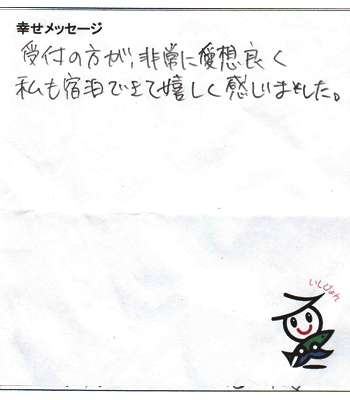 幸せメッセージ
受付の方が、非常に愛想良く
私も宿泊できて嬉しく感じました。
いしぴょん